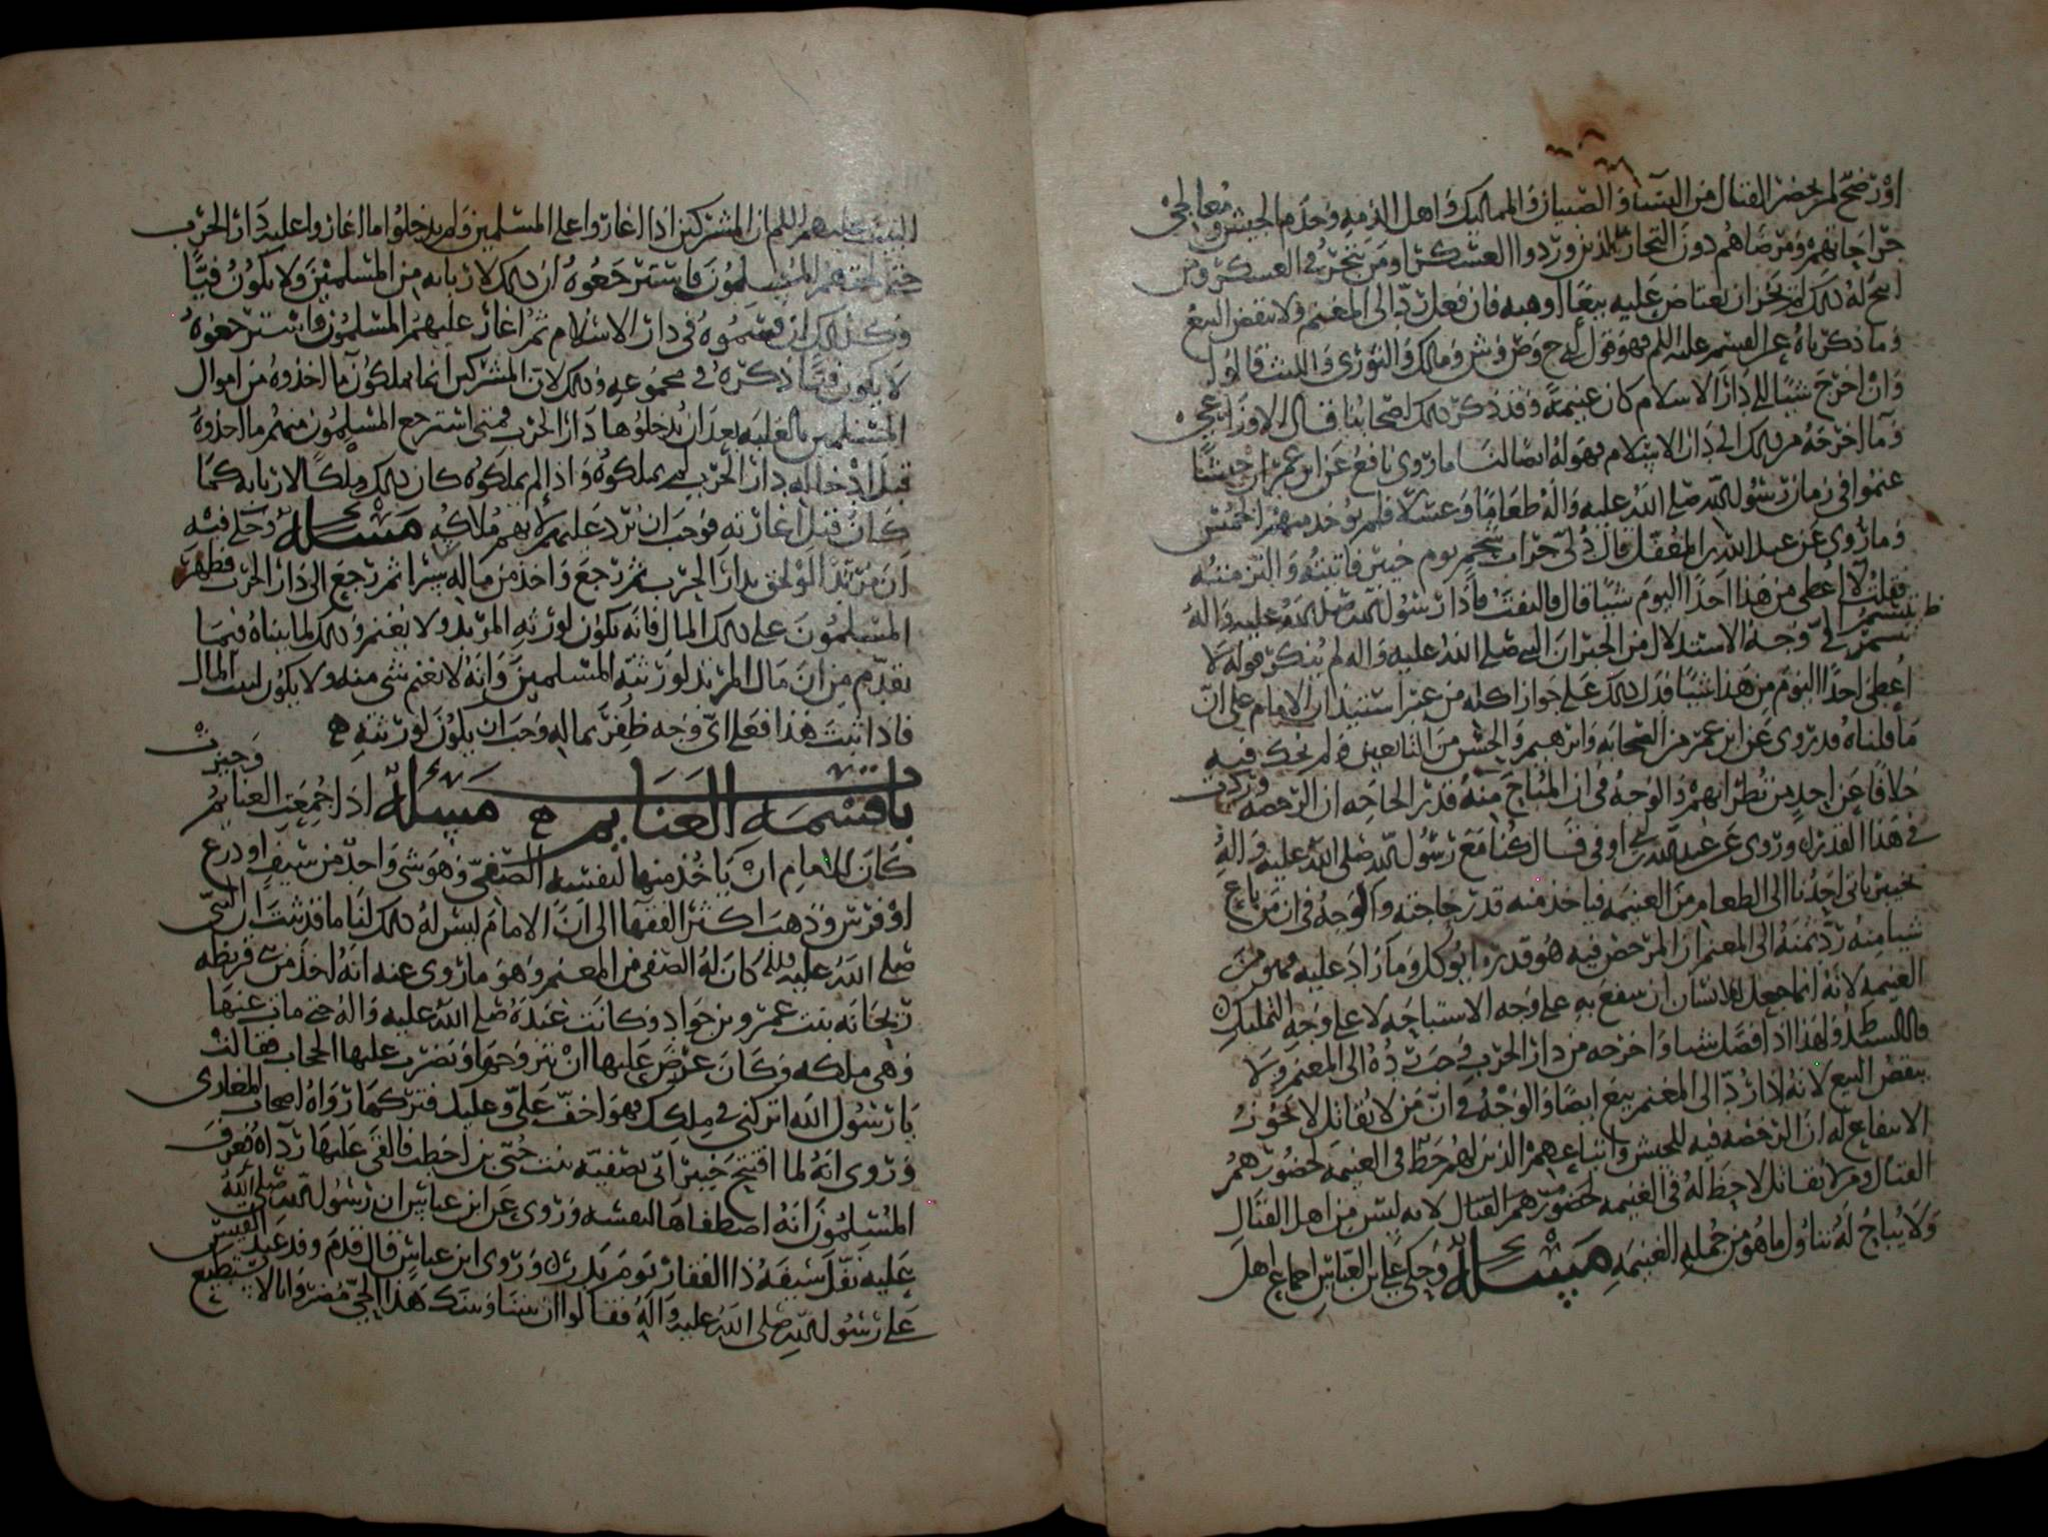 او رضح لمن يحضر القتال من النساء والصبيان والمماليك واهل الذمه وخدم الجيش ومعالجي
جراحاتهم ومرضاهم دون التجار الذين وردوا العسكر او من يتجر في العسكر ومن
ابيح له ذلك لم يجز ان يعتاض عليه بيعًا او هبه فان فعل ردّ الى المغنم ولا ينقض البيع
وما ذكرناه عن القسم عليه السلم فهو قول ح وص وش ومالك والثوري والليث قالوا
وان اخرج شيئا الى دار الاسلام كان غنيمة وقد ذكر ذلك اصحابنا قال الاوزاعي
وما اخرجه من ذلك الى دار الاسلام فهو له ايضا لنا ما روى نافع عن ابن عمر ان جيشًا
غنموا في زمان رسول الله صلى الله عليه واله طعامًا وعسلًا فلم يوخذ منهم الخمس
وما روي عن عبد الله بن المغفل قال دُلّي جراب شحم يوم خيبر فاتيته والتزمته
فقلت لا اعطي من هذا احدًا اليوم شيئًا قال فالتفت فاذا رسول الله صلى الله عليه واله
يتبسم اليّ وجه الاستدلال من الخبر ان النبي صلى الله عليه واله لم ينكر قوله لا
اعطي احدًا اليوم من هذا شيئًا فدل ذلك على جواز اكله من غير استيذان الامام على انّ
ما قلناه قد روي عن ابن عمر من الصحابه وابرهيم والحسن من التابعين ولم يحك فيه
خلافًا عن احدٍ من نظرائهم والوجه في ان المباح منه قدر الحاجه ان الرخصه وردت
في هذا القدر وروي عن عبد الله بن ابي اوفى قال كنا مع رسول الله صلى الله عليه واله
بخيبر ياتي احدنا الى الطعام من الغنيمه فياخذ منه قدر حاجته والوجه في ان من باع
شيا منه ردّ ثمنه الى المغنم ان المرخص فيه هو قدر ما يوكل وما زاد عليه فهو من
الغنيمه لانه انما جعل للانسان ان ينتفع به على وجه الاستباحه لا على وجه التمليك
ولهذا اذا فضل شيا واخرجه من دار الحرب وجب رده الى المغنم ولا
ينقض البيع لانه اذا ردّ الى المغنم بيع ايضًا والوجه في انّ من لا يقاتل لا يجوز
الانتفاع له ان الرخصه فيه للجيش واتباعهم الذين لهم حظ في الغنيمه لحضورهم
القتال ومن لا يقاتل لا حظ له في الغنيمه لحضورهم القتال لانه ليس من اهل القتال
ولا يباح له تناول ما هو من جمله الغنيمه مسئله وحكى علي بن العباس اجماع اهل
البيت عليهم السلم ان المشركين اذا اغاروا على المسلمين ولم يدخلوا ما اغاروا عليه دار الحرب
حتى لحقهم المسلمون فاسترجعوه ان ذلك لاربابه من المسلمين ولا يكون فيًا
وكذلك ان قسموه في دار الاسلام ثم اغار عليهم المسلمون واسترجعوه
لا يكون فيًا ذكره في مجموعه وذلك لان المشركين انما يملكون ما اخذوه من اموال
المسلمين بالغلبه بعد ان يدخلوها دار الحرب فمتى استرجع المسلمون منهم ما اخذوه
قبل ادخاله دار الحرب لم يملكوه واذا لم يملكوه كان ذلك ملكًا لاربابه كما
كان قبل اغارته فوجب ان يرد عليهم لانهم ملاكه مسئله وحكى فيه
ان مرتدًا لو لحق بدار الحرب ثم رجع واخذ من ماله سرا ثم رجع الى دار الحرب فظهر
المسلمون على ذلك المال فانه يكون لورثه المرتد ولا يغنم وذلك لما بيناه فيما
تقدم من ان مال المرتد لورثته المسلمين وانه لا يغنم شي منه ولا يكون لبيت المال
فاذا ثبت هذا فعلى ايّ وجه ظفر بماله وجب ان يكون لورثته
باب قسمه الغنايم مسئله اذا جمعت الغنايم وحيزت
كان للامام ان ياخذ منها لنفسه الصفيّ وهو شي واحد من سيف او درع
او فرس وذهب اكثر الفقها الى انّ الامام ليس له ذلك لنا ما قد ثبت ان النبي
صلى الله عليه واله كان له الصفي من المغنم وهو ما روي عنه انه اخذ من بني قريظه
ريحانه بنت عمرو بن وكانت عنده صلى الله عليه واله حتى مات عنها
وهي ملكه وكان عرض عليها ان يتزوجها ويضرب عليها الحجاب فقالت
يا رسول الله اتركني في ملكك فهو اخفّ عليّ وعليك فتركها رواه اصحاب المغازي
وروي انه لما افتتح خيبر اتي بصفيّه بنت حُيَيّ بن اخطب فالقى عليها رداه فعرف
المسلمون انه اصطفاها لنفسه وروي عن ابن عباس ان رسول الله صلى الله
عليه تنفّل سيفه ذا الفقار يوم بدر وروى ابن عباس قال قدم وفد عبد القيس
على رسول الله صلى الله عليه واله فقالوا ان بيننا وبينك هذا الحي مضر وانا لا نستطيع